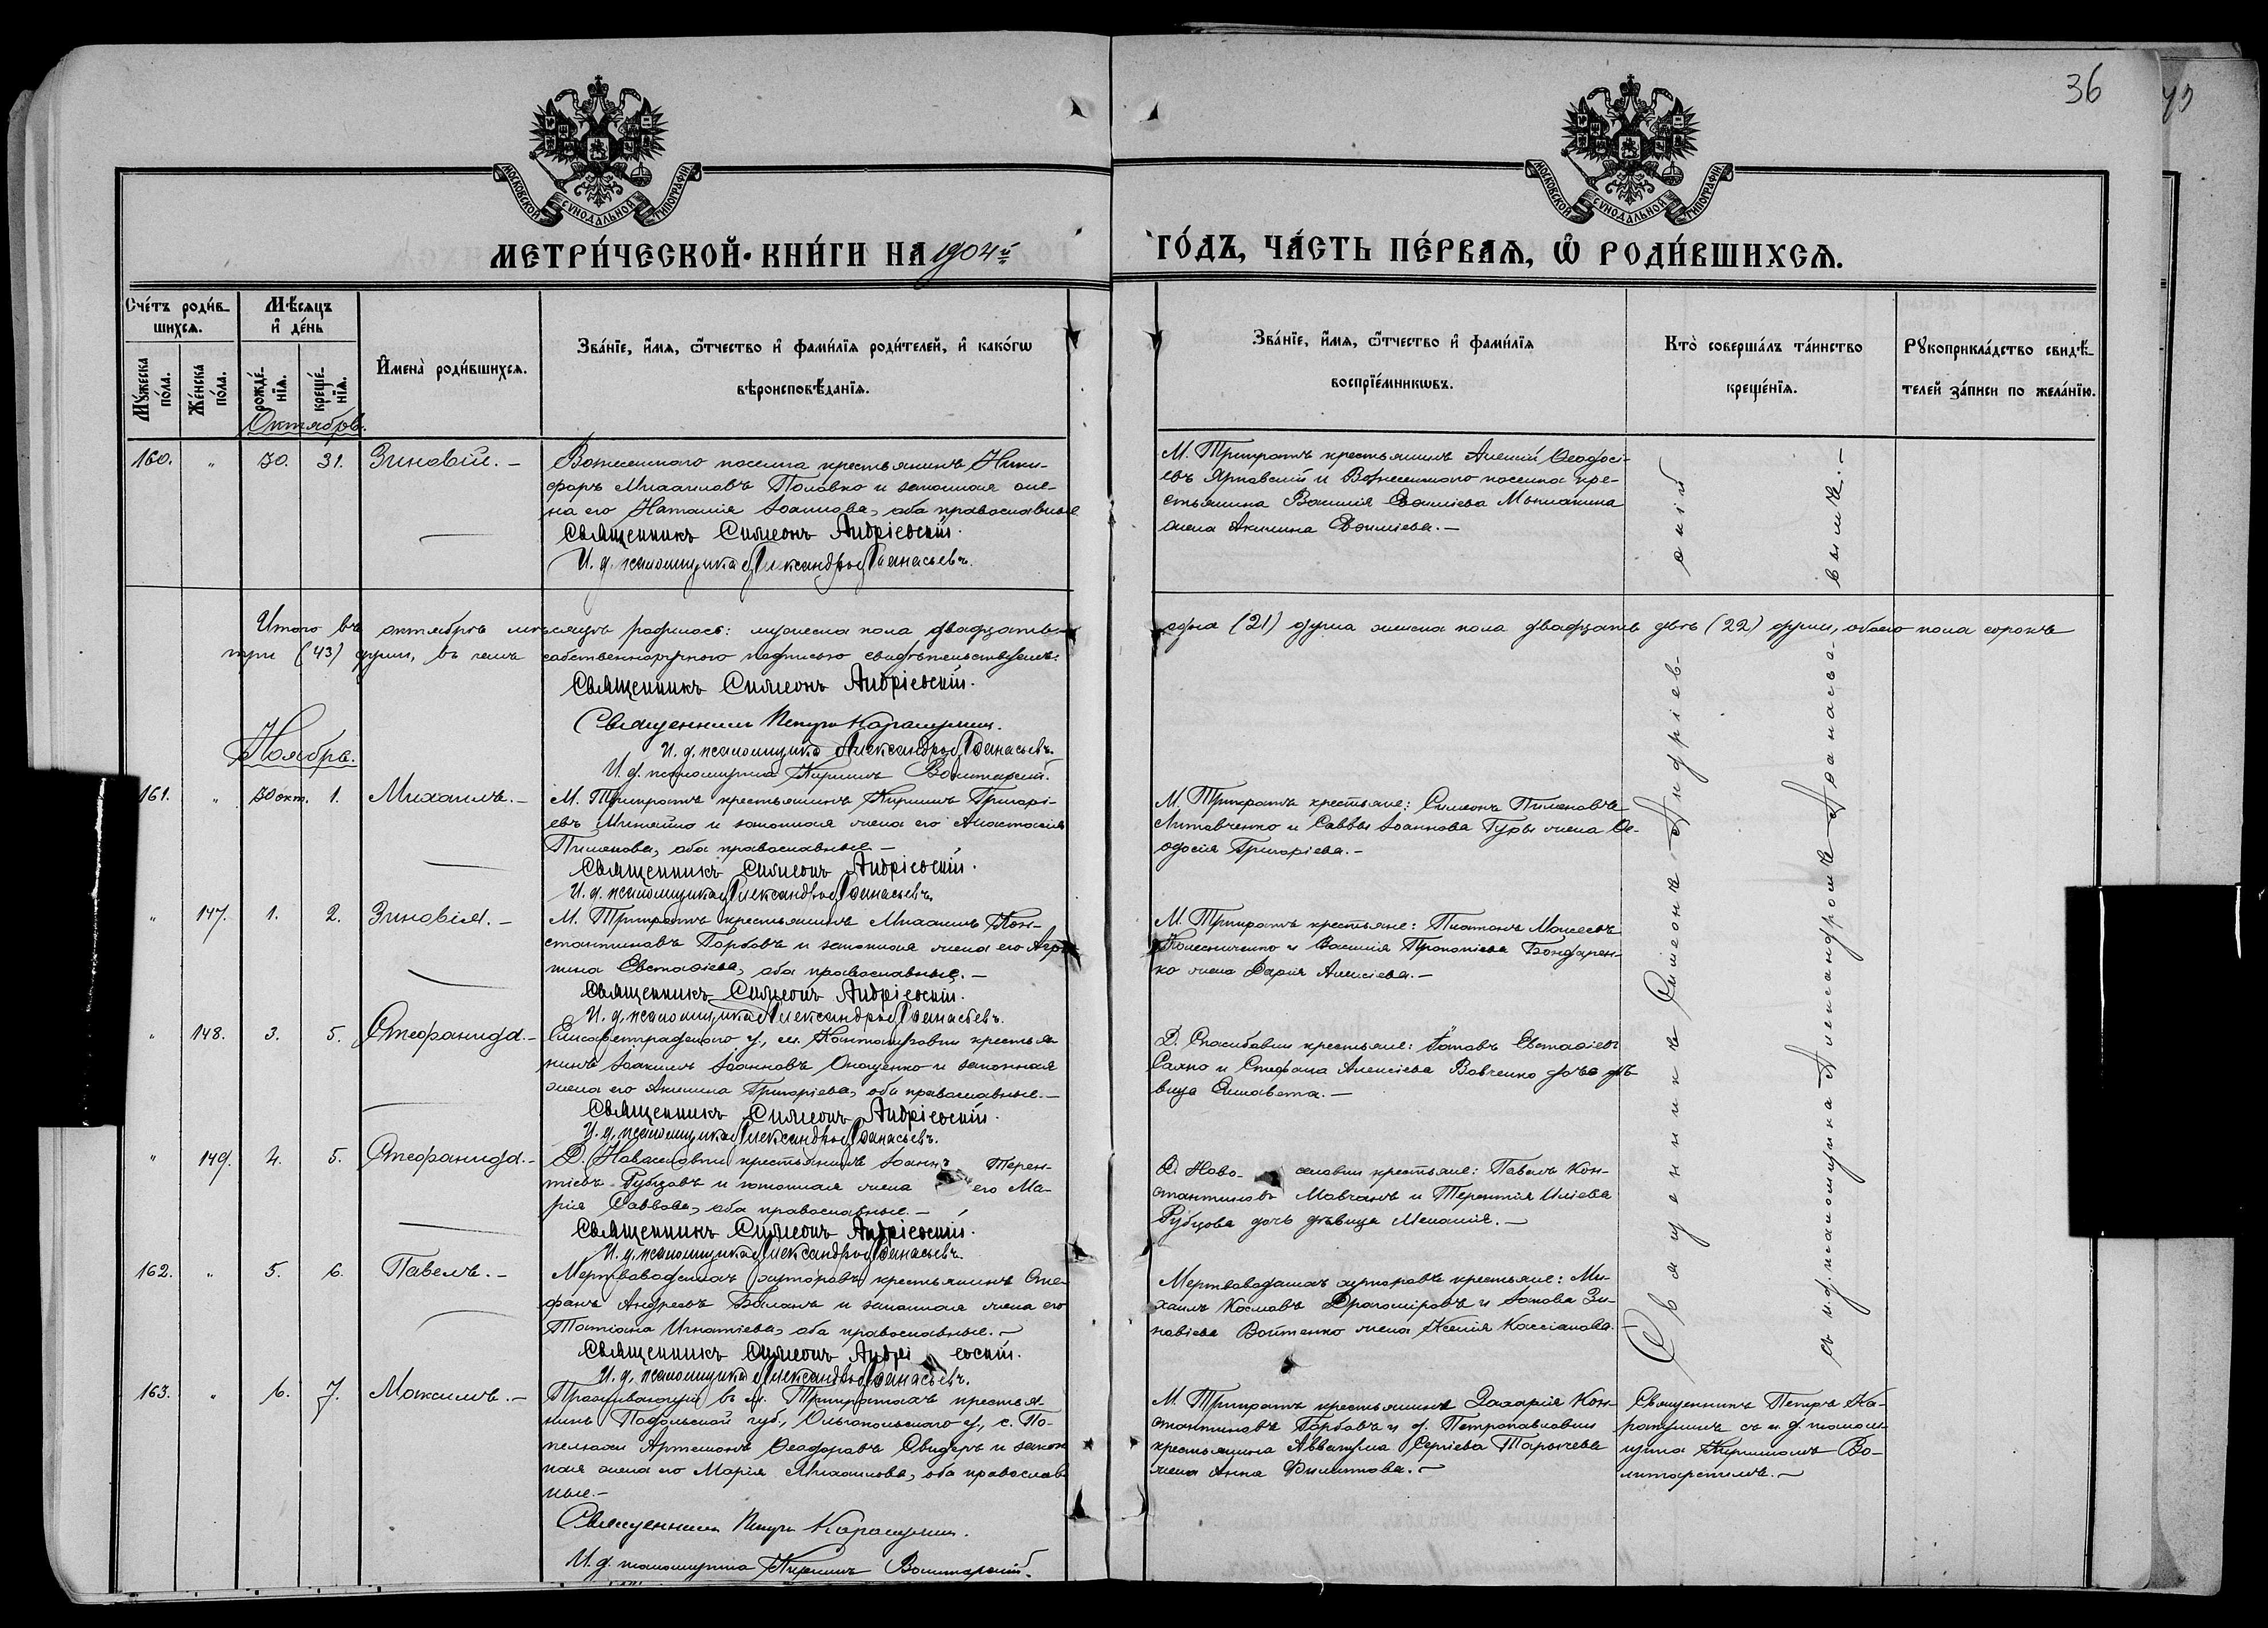 36
МОСКОВСКОЙ СѴНОДАЛЬНОЙ ТИПОГРАФІИ
МОСКОВСКОЙ СѴНОДАЛЬНОЙ ТИПОГРАФІИ
МЕТРИ́ЧЕСКОЙ КНИ́ГИ НА 1904й ГО́ДЪ, ЧА́СТЬ ПЕ́РВАѦ, Ѡ҆ РОДИ́ВШИХСѦ.
Сче́тъ роди́вшихсѧ.
Мѹ́жеска по́ла.
Же́нска по́ла.
Мѣ́сѧцъ и҆ де́нь
рожде́нїѧ.
креще́нїѧ.
И҆мена̀ роди́вшихсѧ.
Зва́нїе, и҆́мѧ, ѻ҆́тчество и҆ фами́лїѧ роди́телей, и҆ како́гѡ
вѣроисповѣ́данїѧ.
Зва́нїе, и҆́мѧ, ѻ҆́тчество и҆ фами́лїѧ
воспрїе́мникѡвъ.
Кто̀ соверша́лъ та́инство
креще́нїѧ.
Рѹкоприкла́дство свидѣ́-
телей за́писи по жела́нїю.
Октябрь.
160. „ 30. 31. Зиновій. –
Вознесенскаго поселка крестьянинъ Ники-
форъ Михаиловъ Половко и законная же-
на его Наталія Іоаннова, оба православные
Священникъ Симеонъ Андріевскій.
И. д. псаломщика Александръ Аѳанасьевъ.
М. Трикратъ крестьянинъ Алексій Ѳеодосі-
евъ Ярнавскій и Вознесенскаго поселка кре-
стьянина Василія
жена Акилина
Итого въ октябрѣ мѣсяцѣ родилось: мужеска пола двадцать одна (21) душа женска пола двадцать двѣ (22) души, обоего пола сорокъ
три (43) души, въ чемъ собственноручною подписью свидѣтельствуемъ:
Священникъ Симеонъ Андріевскій.
Священникъ Петръ Карашулинъ.
И. д. псаломщика Александръ Аѳанасьевъ.
И. д. псаломщика Кириллъ
Ноябрь.
161. „ 30 окт. 1. Михаилъ. –
М. Трикратъ крестьянинъ Кириллъ Григорі-
евъ и законная жена его Анастасія
Пименова, оба православные –
Священникъ Симеонъ Андріевскій.
И. д. псаломщика Александръ Аѳанасьевъ.
М. Трикратъ крестьяне: Симеонъ Пименовъ
Литовченко и Саввы Іоаннова Гуры жена Ѳе-
одосія Григоріева. –
„ 147. 1. 2. Зиновія. –
М. Трикратъ крестьянинъ Михаилъ Кон-
стантиновъ Горбовъ и законная жена его Агрип-
пина Евстаѳіева, оба православные. –
Священникъ Симеонъ Андріевскій.
И. д. псаломщика Александръ Аѳанасьевъ.
М. Трикратъ крестьяне: Платонъ Моисеевъ
Колесниченко и Василія Прокопіева Бондарен-
ко жена Дарія Алексіева. –
„ 148. 3. 5. Стефанида. –
Елисаветградскаго у., м. Кантакузовки крестья-
нинъ Іоакимъ Іоанновъ Онащенко и законная
жена его Акилина Григоріева, оба православные. –
Священникъ Симеонъ Андріевскій.
И. д. псаломщика Александръ Аѳанасьевъ.
Д. Спасибовки крестьяне: Іаковъ Евстаѳіевъ
Сахно и Стефана Алексіева Вовченко дочь дѣ-
вица Елисавета. –
„ 149. 4. 5. Стефанида. –
Д. Новоселовки крестьянинъ Іоаннъ Терен-
тіевъ Рубцовъ и законная жена его Ма-
рія Саввова, оба православные –
Священникъ Симеонъ Андріевскій.
И. д. псаломщика Александръ Аѳанасьевъ.
Д. Ново- селовки крестьяне: Павелъ Кон-
стантиновъ Мовчанъ и Терентія Иліева
Рубцова дочь дѣвица Меланія. –
162. „ 5. 6. Павелъ. –
Мертвоводскихъ хуторовъ крестьянинъ Сте-
фанъ Андреевъ Баланъ и законная жена его
Татіана Игнатіева, оба православные. –
Священникъ Симеонъ Андріевскій.
И. д. псаломщика Александръ Аѳанасьевъ.
Мертвоводскихъ хуторовъ крестьяне: Ми-
хаилъ Космовъ Драгомировъ и Іакова Зи-
новіева Войтенко жена Ксенія Кассіанова.
Священникъ Симеонъ Андріевскій
съ и. д. псаломщика Александромъ Аѳанасьевымъ. –
163. „ 6. 7. Максимъ. –
Проживающій въ м. Трикратахъ крестья-
нинъ Подольской губ., Ольгопольскаго у., с. По-
пелюхи Артемонъ Ѳеодоровъ Свидеръ и закон-
ная жена его Марія Михаилова, оба православ-
ные. –
Священникъ Петръ Карашулинъ.
И. д. псаломщика Кириллъ
М. Трикратъ крестьянинъ Захарія Кон-
стантиновъ Горбовъ и д. Петропавловки
крестьянина Аввакума Сергіева Тарычева
жена Анна Филиппова. –
Священникъ Петръ Ка-
рашулинъ съ и. д. псалом-
щика Кирилломъ